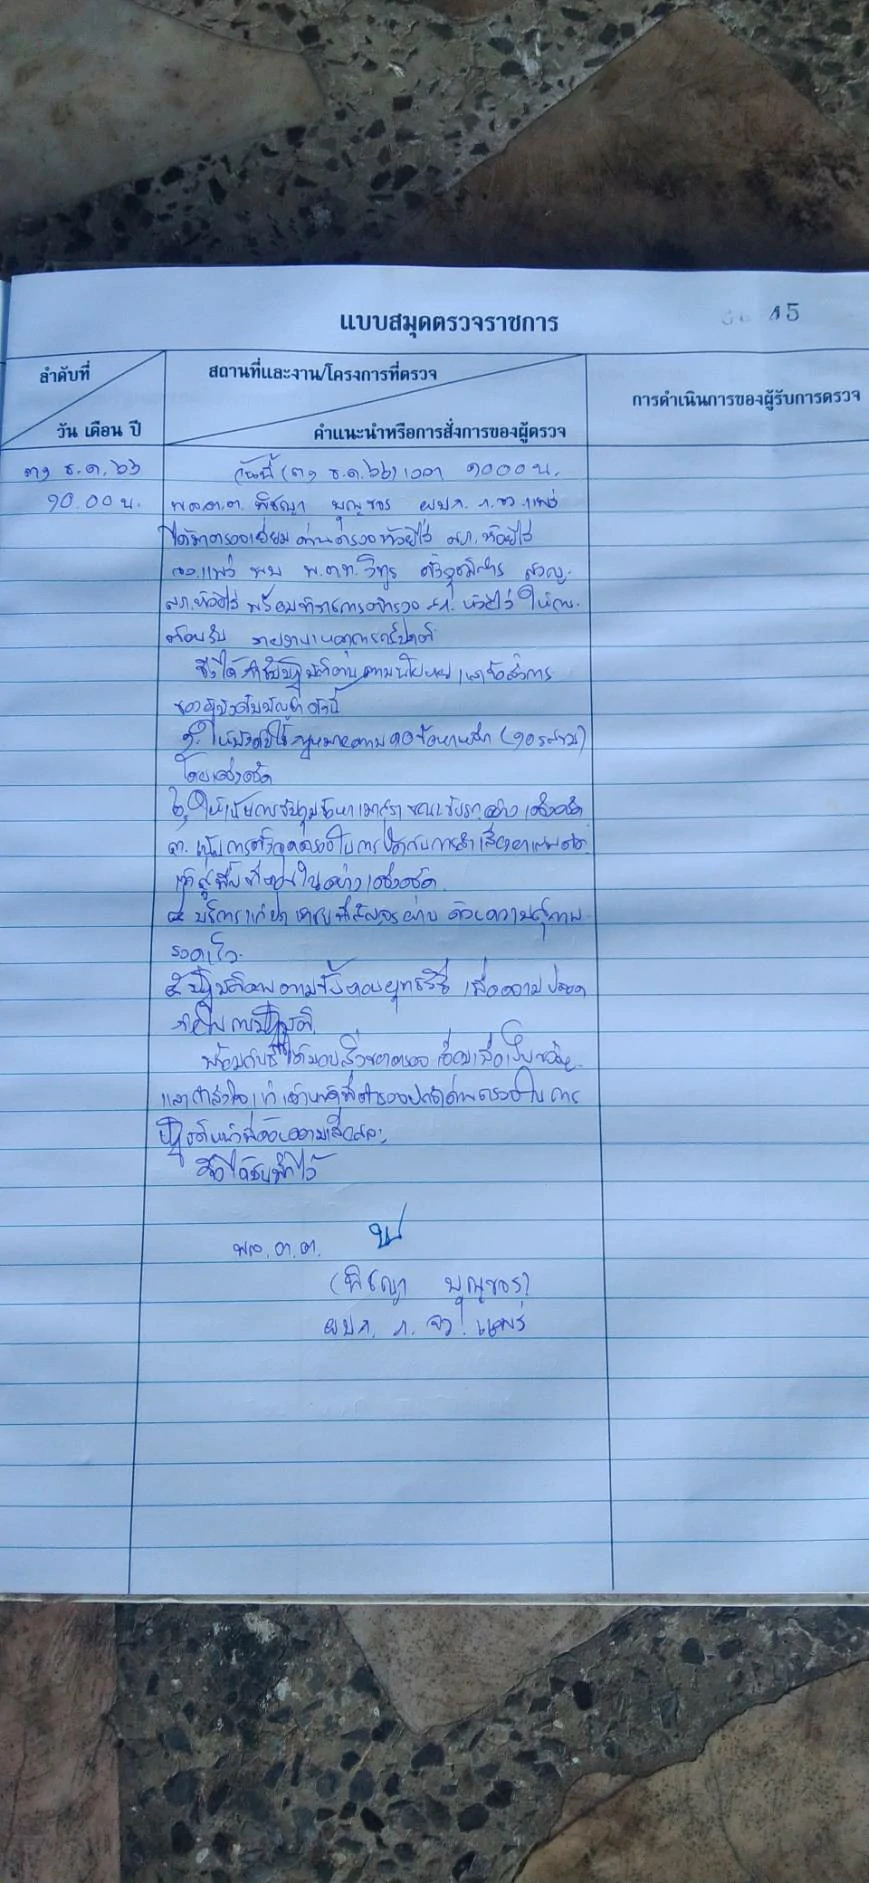 แบบสมุดตรวจราชการ
45
ลำดับที่
วัน เดือน ปี
สถานที่และงาน/โครงการที่ตรวจ
คำแนะนำหรือการสั่งการของผู้ตรวจ
การดำเนินการของผู้รับการตรวจ
๓๑ ธ.ค.๖๖
๑๐.๐๐ น.
วันนี้ (๓๑ ธ.ค.๖๖) เวลา ๑๐๐๐ น.
พล.ต.ต. พิชญา บุญขจร ผบก.ภ.จว.แพร่
ได้มาตรวจเยี่ยม ด่านตรวจห้วยไร่ สภ.ห้วยไร่
จว.แพร่ พบ พ.ต.ท.วิทูร สวญ.
สภ.ห้วยไร่ พร้อมข้าราชการตำรวจ สภ.ห้วยไร่ ให้การ
ต้อนรับ รายงานเหตุการณ์ปกติ
จึงได้กำชับปฏิบัติตามนโยบายและข้อสั่งการ
ของผู้บังคับบัญชา ดังนี้
๑. ให้บังคับใช้กฎหมายตาม ๑๐ ข้อหาหลัก (๑๐ รสขม)
โดยเคร่งครัด
๒. ให้เน้นการจับกุมข้อหาเมาสุราขณะขับรถอย่างเคร่งครัด
อย่างเคร่งครัด
๔. บริการแก่ประชาชนที่สัญจรผ่าน ด้วยความสุภาพ
รวดเร็ว
๕. ปฏิบัติตามยุทธวิธี เพื่อความปลอดภัย
ในการปฏิบัติ
พร้อมกันนี้ได้มอบสิ่งของ
และกำลังใจแก่เจ้าหน้าที่ตำรวจประจำด่านตรวจในการ
ปฏิบัติหน้าที่ด้วยความเสียสละ
จึงได้บันทึกไว้
พล.ต.ต.
(พิชญา บุญขจร)
ผบก.ภ.จว.แพร่